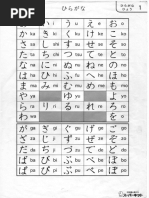 ひらがな
ひらがな
1
あ a い i う u え e お o
か ka き ki く ku け ke こ ko
さ sa し shi す su せ se そ so
た ta ち chi つ tsu て te と to
な na に ni ぬ nu ね ne の no
は ha ひ hi ふ fu へ he ほ ho
ま ma み mi む mu め me も mo
や ya ゆ yu よ yo
ら ra り ri る ru れ re ろ ro
わ wa を o
が ga ぎ gi ぐ gu げ ge ご go
ざ za じ ji ず zu ぜ ze ぞ zo
だ da ぢ ji づ zu で de ど do
ば ba び bi ぶ bu べ be ぼ bo
ぱ pa ぴ pi ぷ pu ぺ pe ぽ po